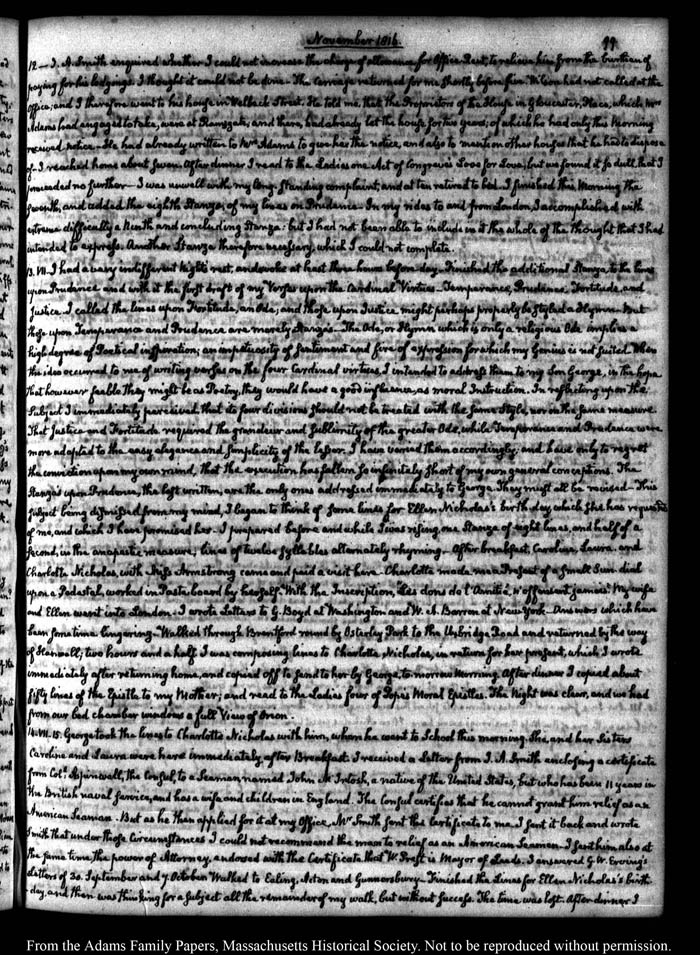 November 1816.
99.
12— J. A. Smith enquired whether I could not increase the charge of allowance for Office Rent, to relieve him from the burthen of
paying for his lodgings. I thought it could not be done. The Carriage returned for me shortly before five. Wilson had not called at the
Office; and I therefore went to his house in Welbeck Street. He told me, that the Proprietors of the House in Gloucester Place, which Mrs
Adams had engaged to take, were at Ramsgate, and there, had already let the house for two years; of which he had only this Morning
received notice. He had already written to Mrs Adams to give her the notice, and also to mention other houses that he had to dispose
of. I reached home about seven. After dinner I read to the Ladies one Act of Congreve's Love for Love; but we found it so dull, that I
proceeded no further— I was unwell with my long standing complaint, and at ten retired to bed. I finished this Morning the
seventh, and added the eighth Stanza, of my lines on Prudence. In my rides to and from London, I accomplished with
extreme difficulty a Ninth and concluding Stanza: but I had not been able to include in it the whole of the thought that I had
intended to express. Another Stanza therefore necessary, which I could not complete.
13. VII. I had a very indifferent Night's rest, and awoke at least three hours before day. Finished the additional Stanza, to the lines
upon Prudence and with it the first draft of my Verses upon the Cardinal Virtues. Temperance, Prudence, Fortitude, and
Justice. I called the lines upon Fortitude, an Ode; and those upon Justice might perhaps properly be styled a Hymn. But
those upon Temperance and Prudence are merely Stanza's. The Ode, or Hymn which is only a religious Ode implies a
high degree of Poetical inspiration; an impetuosity of Sentiment and fire of expression for which my Genius is not suited. When
the idea occurred to me of writing verses on the four Cardinal virtues, I intended to address them to my Son George, in the hope
that however feeble they might be as Poetry, they would have a good influence, as moral Instruction. In reflecting upon the
Subject I immediately perceived that its four divisions should not be treated with the same Style, nor in the same measure.
That Justice and Fortitude required the grandeur and Sublimity of the greater Ode, while Temperance and Prudence were
more adapted to the easy elegance and Simplicity of the lesser. I have varied them accordingly; and have only to regret
the conviction upon my own mind, that the execution has fallen so infinitely short of my own general conceptions. The
Stanza's upon Prudence, the last written, are the only ones addressed immediately to George. They must all be revised— This
subject being dismissed from my mind, I began to think of some lines for Ellen Nicholas's birth-day, which she has requested
of me, and which I have promised her. I prepared before and while I was rising, one Stanza of eight lines, and half of a
second, in the anapestic measure; lines of twelve syllables alternately rhyming. After breakfast, Caroline, Laura, and
Charlotte Nicholas, with Miss Armstrong came and paid a visit here. Charlotte made me a Present of a small Sun dial
upon a Pedestal, worked in Pasteboard by herself. With the Inscription, "Les dons de l'Amitié, n'offensent jamais." My wife
and Ellen went into London. I wrote Letters to G. Boyd at Washington and W. A. Barron at New York. Answers which have
been sometime lingering. Walked through Brentford round by Osterley Park to the Uxbridge Road and returned by the way
of Hanwell; two hours and a half. I was composing lines to Charlotte Nicholas, in return for her present, which I wrote
immediately after returning home, and copied off to send to her by George, to morrow Morning. After dinner I copied about
fifty lines of the Epistle to my Mother; and read to the Ladies four of Popes Moral Epistles. The Night was clear, and we had
from our bed chamber windows a full View of Orion.
14. VII. 15. George took the lines to Charlotte Nicholas with him, when he went to School this morning. She, and her Sisters
Caroline and Laura were here immediately after Breakfast. I received a Letter from J. A. Smith enclosing a certificate
from Col. Aspinwall, the Consul to a Seaman named John McIntosh, a native of the United States, but who has been 11 years in
the British naval service, and has a wife and children in England. The Consul certifies that he cannot grant him relief as an
American Seaman. But as he then applied for it at my Office, Mr Smith sent the certificate to me. I sent it back and wrote
Smith that under those circumstances I could not recommend the man to relief as an American Seaman. I sent him also at
the same time, the power of Attorney, endorsed with the Certificate that W. Prest is Mayor of Leeds. I answered G. W. Erving's
Letters of 30. September and 7. October. Walked to Ealing, Acton and Gunnersbury. Finished the Lines for Ellen Nicholas's birth
day, and then was thinking for a subject all the remainder of my walk, but without success. The time was lost. After dinner I
From the Adams Family Papers, Massachusetts Historical Society. Not to be reproduced without permission.